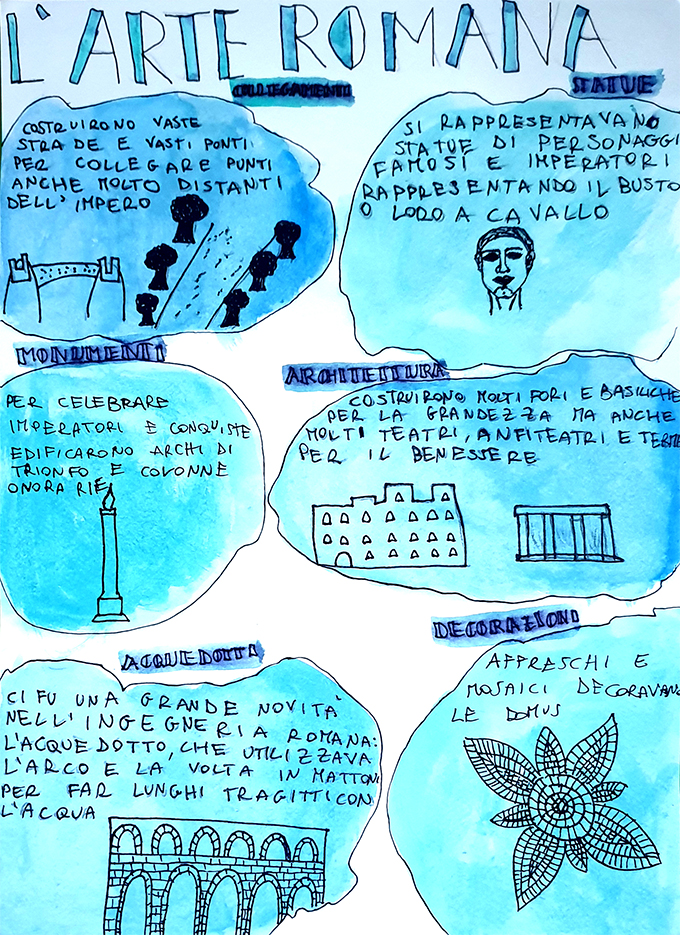 L'ARTE ROMANA
COLLEGAMENTI
COSTRUIRONO VASTE
STRADE E VASTI PONTI
PER COLLEGARE PUNTI
ANCHE MOLTO DISTANTI
DELL'IMPERO
STATUE
SI RAPPRESENTAVANO
STATUE DI PERSONAGGI
FAMOSI E IMPERATORI
RAPPRESENTANDO IL BUSTO
O LORO A CAVALLO
MONUMENTI
PER CELEBRARE
IMPERATORI E CONQUISTE
EDIFICARONO ARCHI DI
TRIONFO E COLONNE
ONORARIE
ARCHITETTURA
COSTRUIRONO MOLTI FORI E BASILICHE
PER LA GRANDEZZA MA ANCHE
MOLTI TEATRI, ANFITEATRI E TERME
PER IL BENESSERE
ACQUEDOTTI
CI FU UNA GRANDE NOVITÀ
NELL'INGEGNERIA ROMANA:
L'ACQUEDOTTO, CHE UTILIZZAVA
L'ARCO E LA VOLTA IN MATTONI
PER FAR LUNGHI TRAGITTI CON
L'ACQUA
DECORAZIONI
AFFRESCHI E
MOSAICI DECORAVANO
LE DOMUS